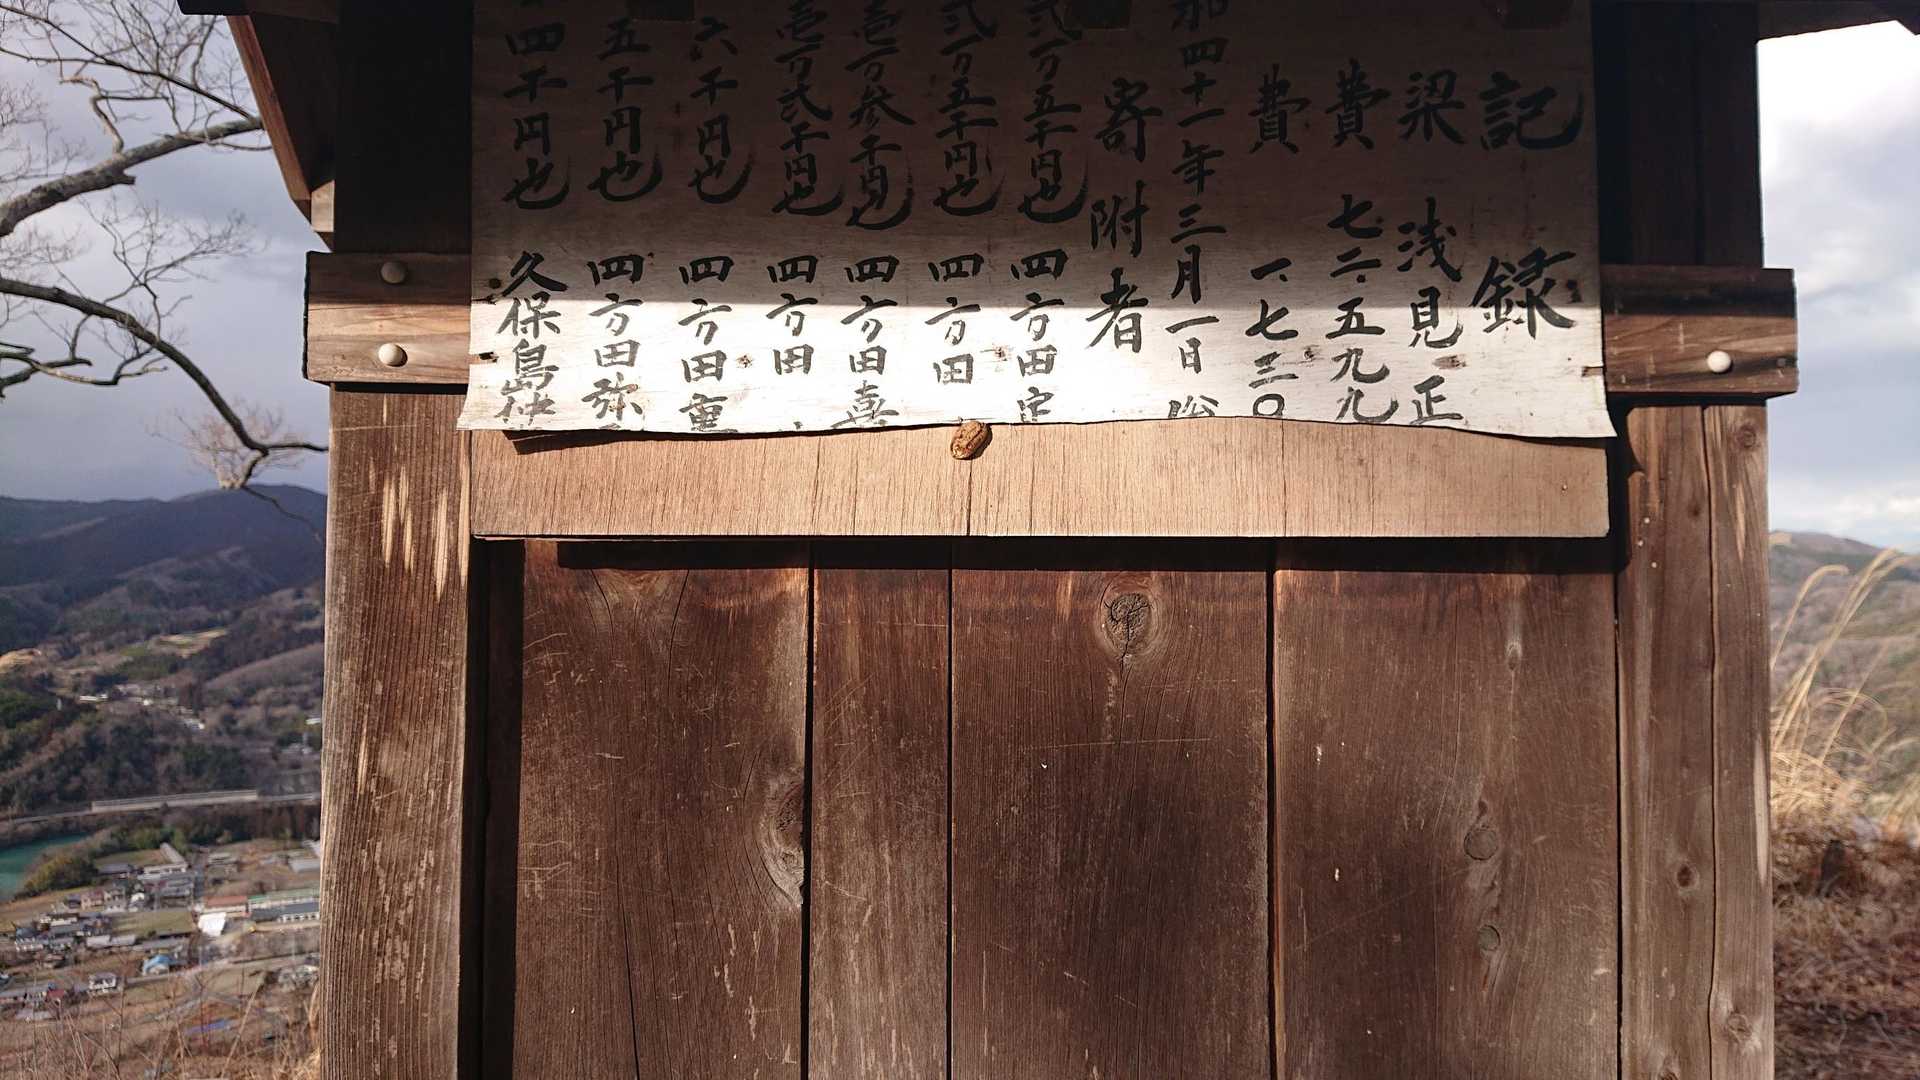 記録
梁 浅見 正
費 七二、五九九
費 一、七三〇
和四十一年三月一日
寄附者
弐万五千円也 四方田
弐万五千円也 四方田
壱万参千円也 四方田喜
壱万弐千円也 四方田
六千円也 四方田重
五千円也 四方田弥
四千円也 久保島仲